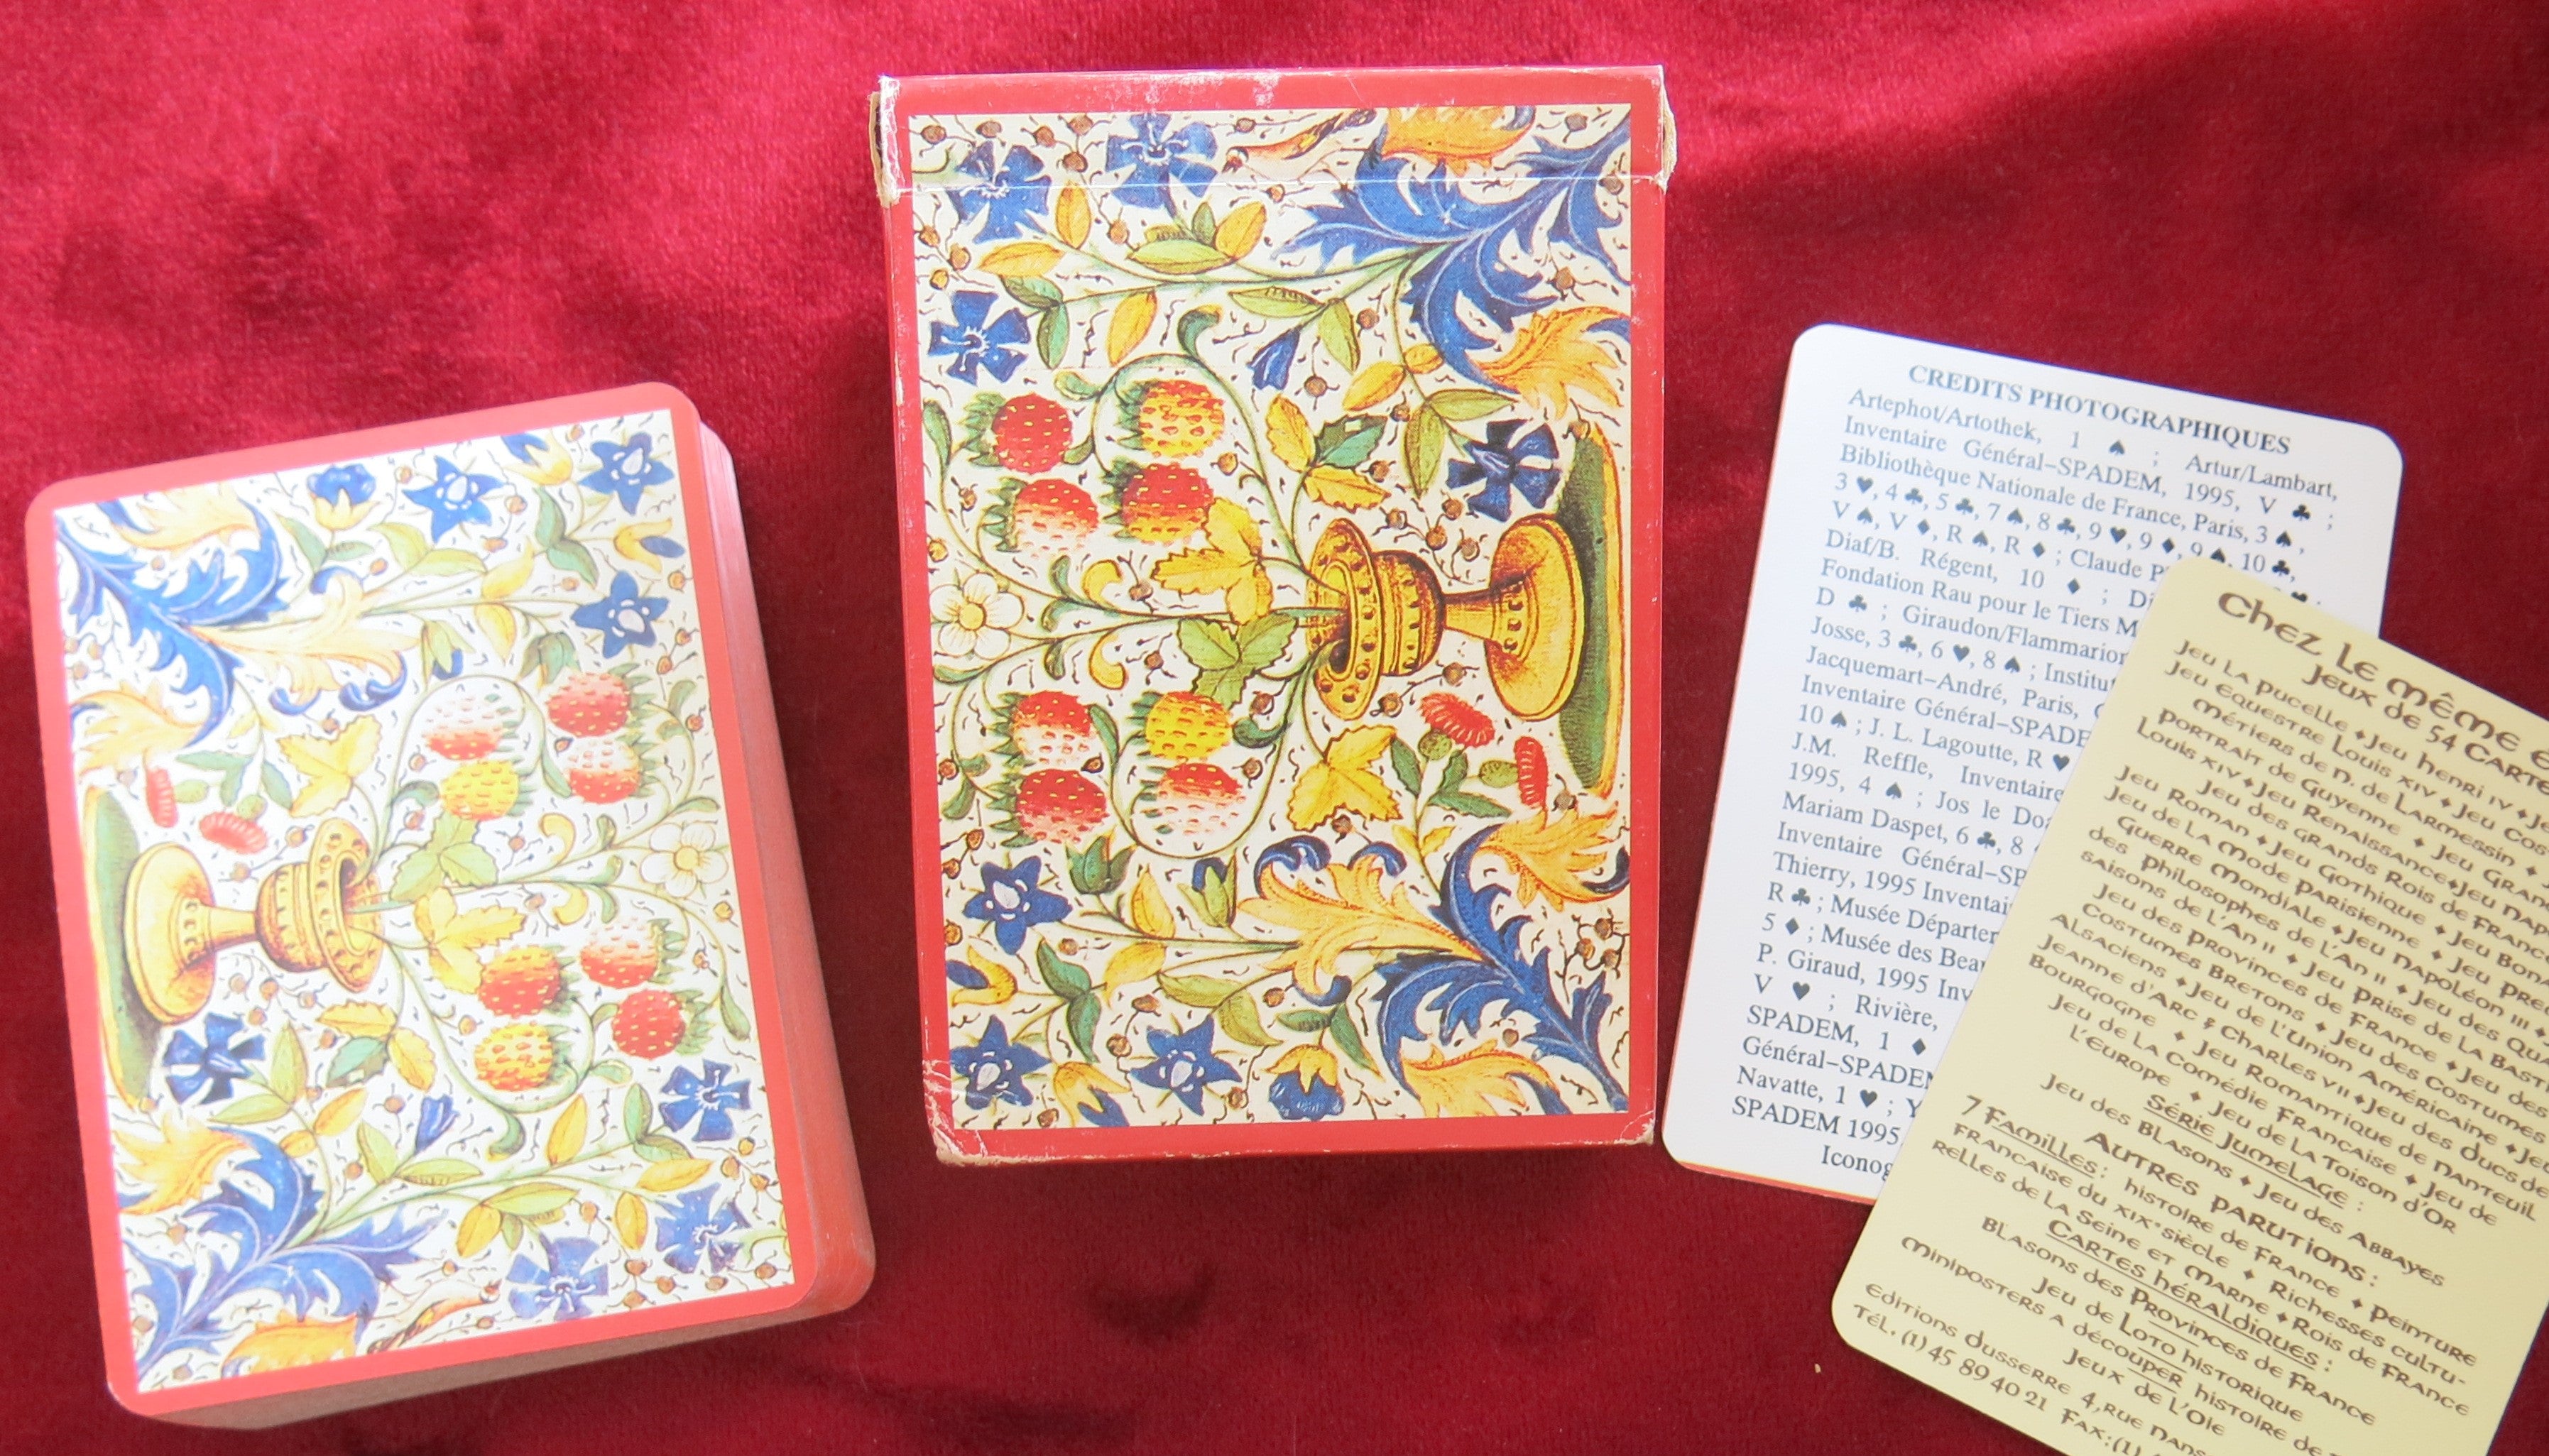 CREDITS PHOTOGRAPHIQUES
Artephot/Artothek, 1 ♠ ; Artur/Lambart,
Inventaire Général–SPADEM, 1995, V ♣ ;
Bibliothèque Nationale de France, Paris, 3 ♠,
3 ♥, 4 ♣, 5 ♣, 7 ♠, 8 ♣, 9 ♥, 9 ♦, 9 ♠, 10 ♣,
V ♠, V ♦, R ♠, R ♦ ; Claude
Diaf/B. Régent, 10 ♦ ;
Fondation Rau pour le Tiers
D ♣ ; Giraudon/Flammarion
Josse, 3 ♣, 6 ♥, 8 ♠ ; Institut
Jacquemart–André, Paris,
Inventaire Général–SPADE
10 ♠ ; J. L. Lagoutte, R ♥
J.M. Reffle, Inventaire
1995, 4 ♠ ; Jos le
Mariam Daspet, 6 ♣, 8
Inventaire Général–SP
Thierry, 1995
R ♣ ; Musée
5 ♦ ; Musée des
P. Giraud, 1995
V ♥ ; Rivière,
SPADEM, 1 ♦
Général–SPADEM
Navatte, 1 ♥ ;
SPADEM 1995
Iconog
Chez le même
Jeux de 54 Carte
Jeu La Pucelle ♦ Jeu Henri IV ♦
Jeu Equestre Louis XIV ♦ Jeu
Métiers de N. de Larmessin ♦
Portrait de Guyenne ♦ Jeu
Louis XIV ♦ Jeu Renaissance ♦ Jeu
Jeu des Grands Rois de France
Jeu Roman ♦ Jeu Gothique ♦ Jeu
Jeu de la Mode Parisienne ♦ Jeu
Guerre Mondiale ♦ Jeu Napoléon III ♦
des Philosophes de l'An II ♦ Jeu des
Saisons de l'An II ♦ Jeu Prise de la
Jeu des Provinces de France ♦ Jeu des
Costumes Bretons ♦ Jeu des Costumes
Alsaciens ♦ Jeu de l'Union Américaine ♦
Jeanne d'Arc & Charles VII ♦ Jeu des Ducs de
Bourgogne ♦ Jeu Romantique de Nanteuil
Jeu de la Comédie Française ♦ Jeu de
l'Europe ♦ Jeu de la Toison d'Or
Série Jumelage :
Jeu des Blasons ♦ Jeu des Abbayes
Autres parutions :
7 Familles : histoire de France ♦ Peinture
Française du XIXe siècle ♦ Richesses cultu-
relles de la Seine et Marne ♦ Rois de France
Cartes héraldiques :
Blasons des Provinces de France
Jeu de Loto historique
Miniposters à découper histoire de
Jeux de l'Oie
Editions Dusserre 4, rue
Tél. (1) 45 89 40 21 Fax : (1)